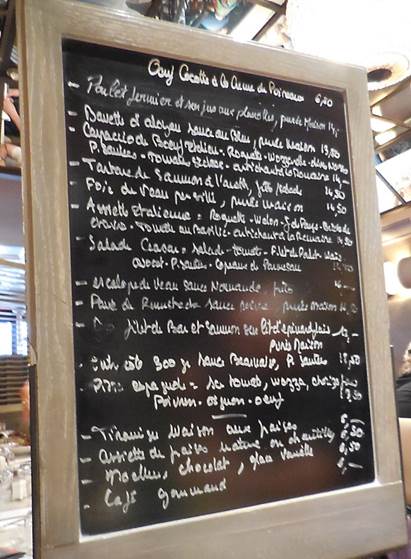 Oeuf Cocotte à la Creme de Poireaux 6,50
- Poulet fermier et son jus aux girolles, purée Maison 14,-
- Bavette d'aloyau sauce au Bleu, purée maison 13,50
- Carpaccio de Boeuf Italien - Roquette - Mozzarella -
P. sautées - Tomate - artichaut à la Romaine 14,-
- Tartare de Saumon à l'aneth, salade 14,50
- Foie de veau persillé, purée maison 14,50
- Assiette Italienne = Roquette - Melon - J. de Parme -
- Tomate au Basilic - artichaut à la Romaine 14,50
- Salade Ceasar = Salade - tomate - Filet de Poulet - Maïs
avocat - P. sautées - Copeaux de Parmesan
- escalope de Veau Sauce Normande, frites
- Pavé de Rumsteck sauce poivre, purée maison
- filet de Bar et Saumon sur lit d'épinards frais
purée maison
- côte 300 g sauce Bearnaise, P. sautées 18,50
- Pizza espagnole = tomate, mozza, chorizo 13,50
Poivron - oignon - oeuf
- Tiramisu Maison aux fraises
- assiette de fraises nature ou chantilly 6,50
- Moelleux chocolat, glace vanille 6,50
- Café gourmand